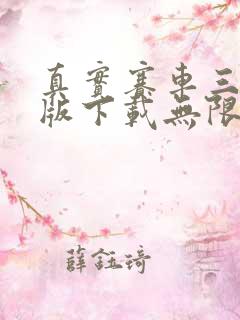 真實賽車三
版下載無限
薛鈺琦